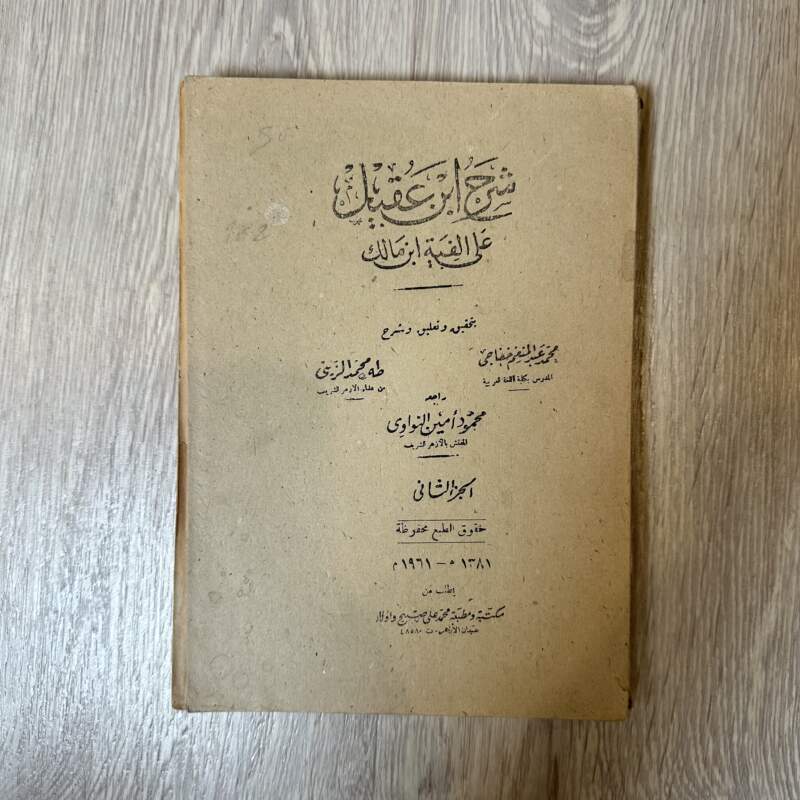 شرح ابن عقيل
على الفية ابن مالك
بتحقيق وتعليق وشرح
محمد عبد المنعم خفاجى
المدرس بكلية اللغة العربية
طه محمد الزينى
من علماء الأزهر الشريف
راجعه
محمود أمين النواوى
المفتش بالأزهر الشريف
الجزء الثانى
حقوق الطبع محفوظة
١٣٨١ ه - ١٩٦١ م
يطلب من
مكتبة ومطبعة محمد على صبيح وأولاده
بميدان الأزهر ت ٤٨٥٨٠